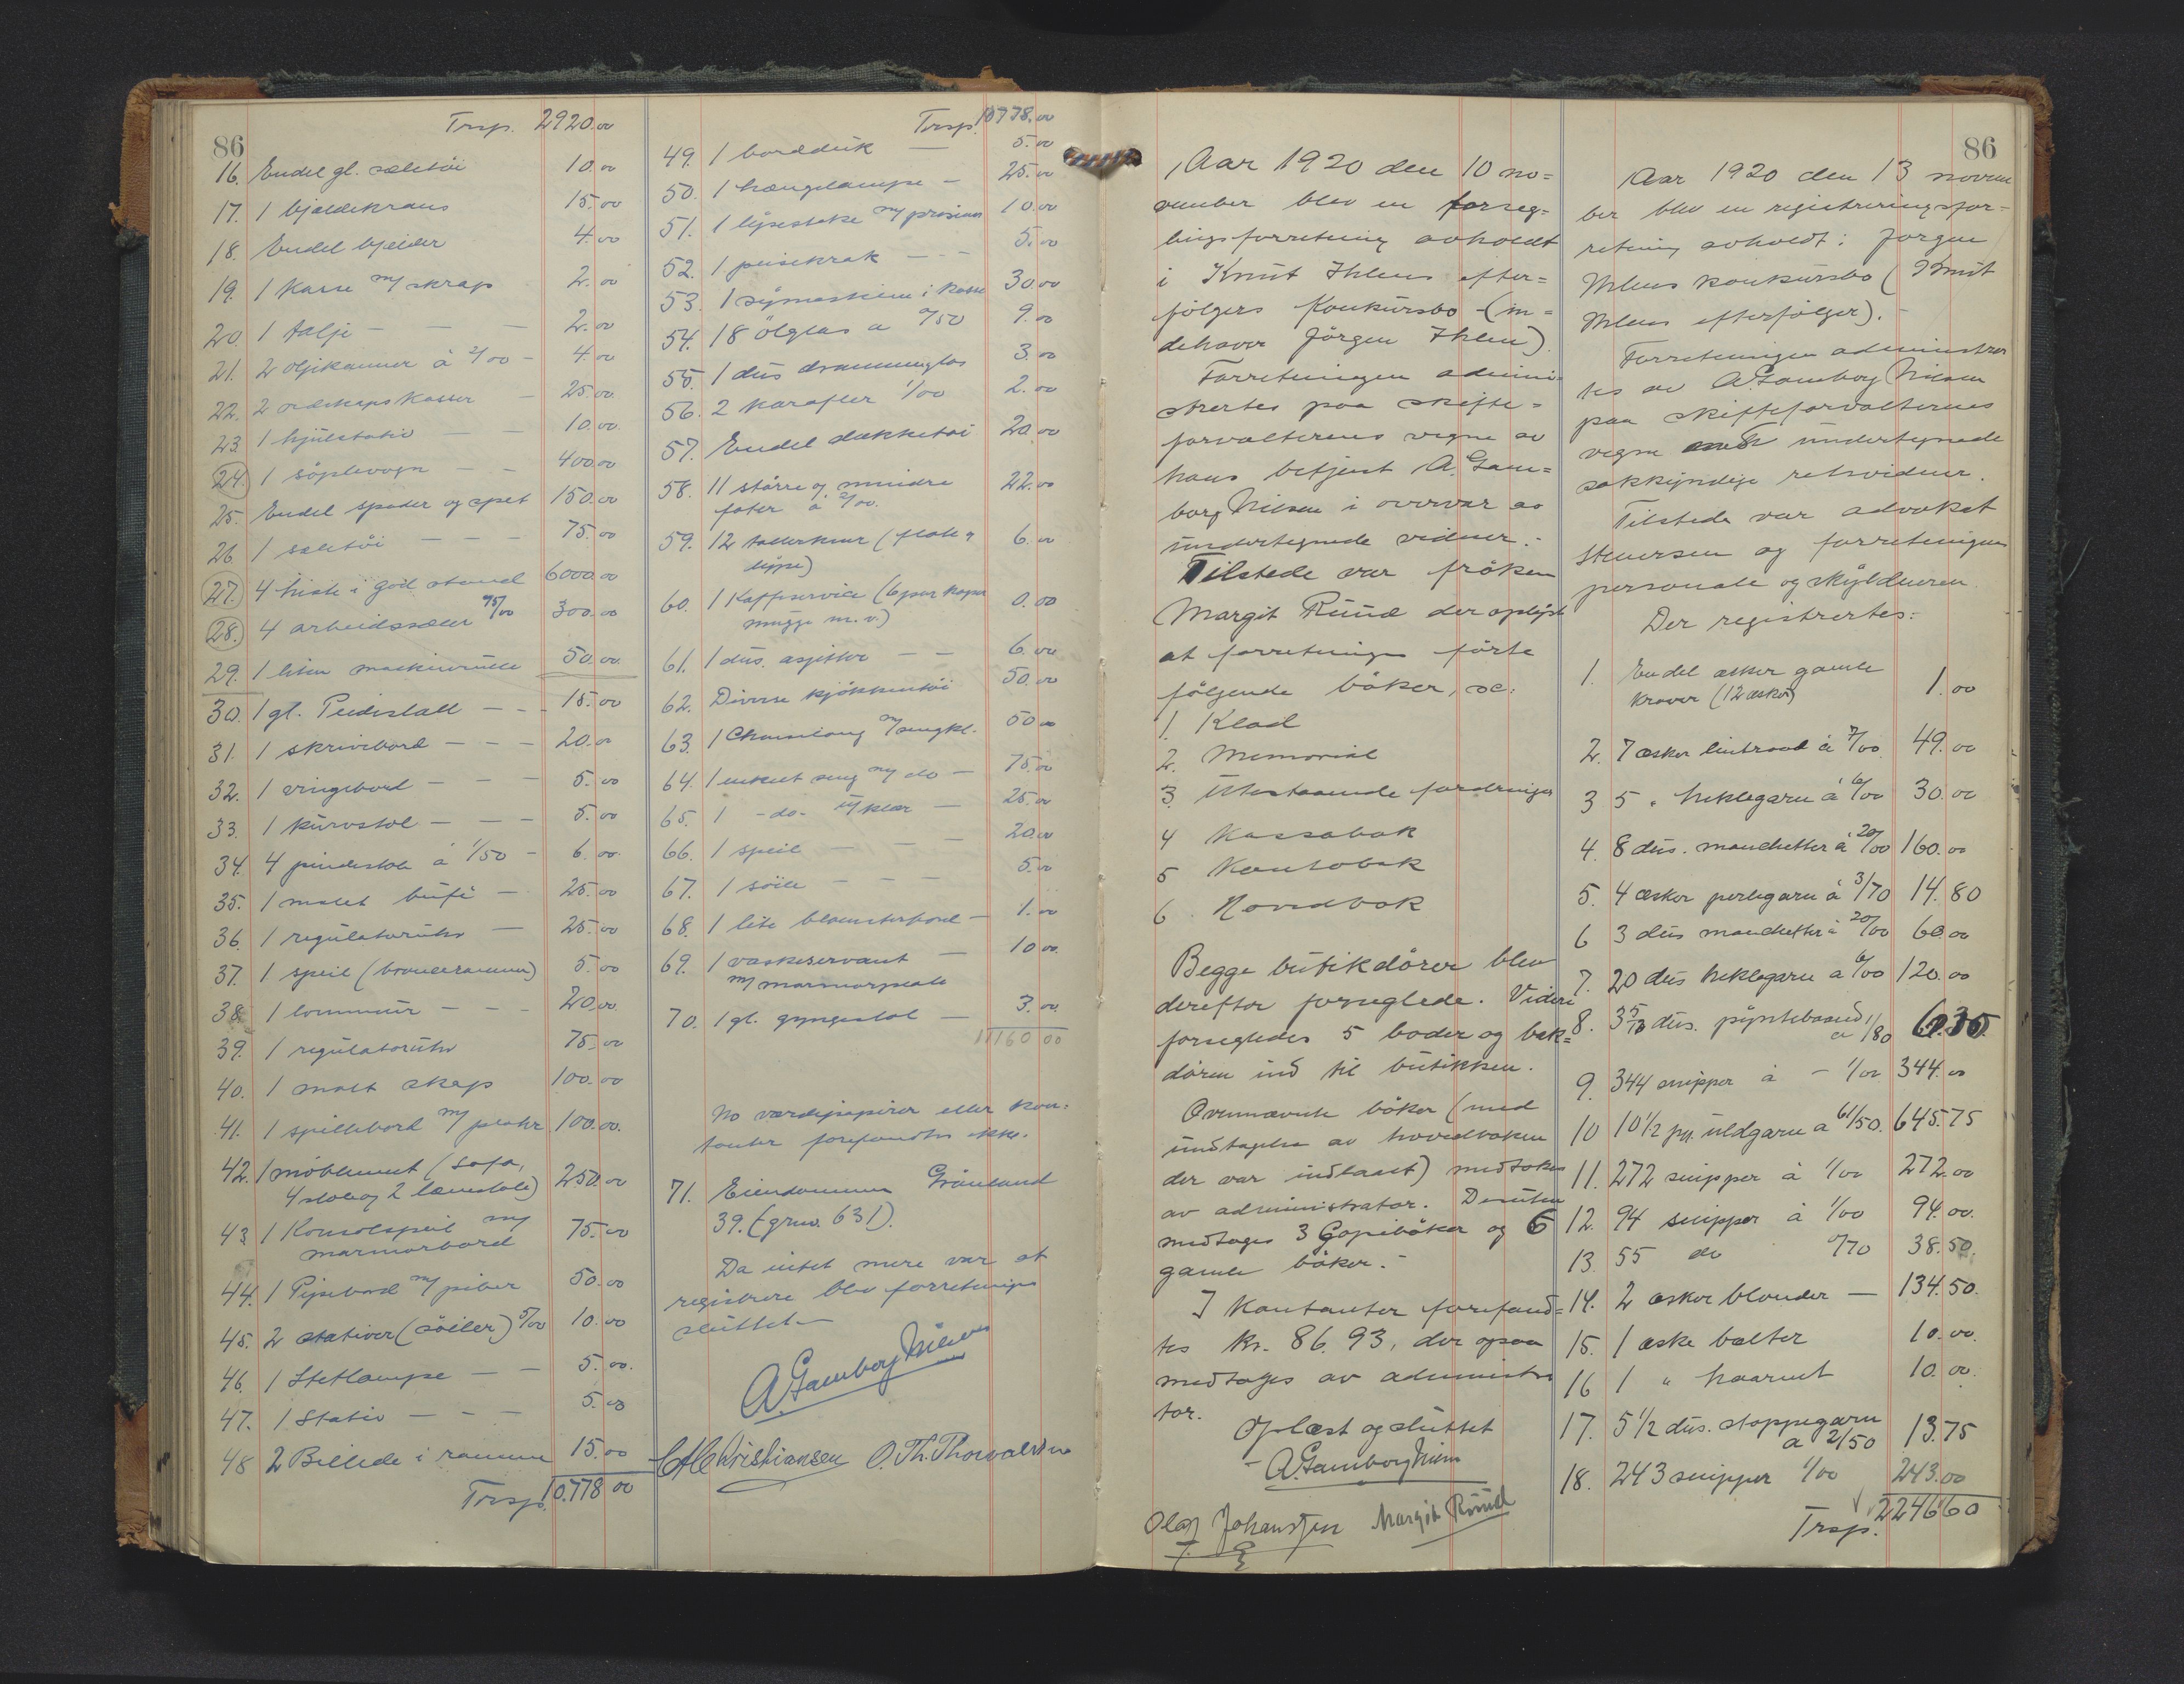 86
Trsp. 2920.00
16. Endel gl. seletöi 10.00
17. 1 bjeldekrans 15.00
18. Endel bjelder 4.00
19. 1 kasse m/ skrap 2.00
20. 1 talje — — — 2.00
21. 2 oljekanner á 2/00 — 4.00
22. 2 redskapskasser — 25.00
23. 1 hjulstativ — — 10.00
24. 1 söplevogn — — 400.00
25. Endel spader og spet 150.00
26. 1 seletöi — — — 75.00
27. 4 heste i god stand 6000.00
28. 4 arbeidsseler 75/00 300.00
29. 1 liten maskinrulle 50.00
30. 1 gl. Pidestall — — 15.00
31. 1 skrivebord — — — 20.00
32. 1 ringebord — — — 5.00
33. 1 kurvstol — — — 5.00
34. 4 pindestole á 1/50 — 6.00
35. 1 malet bufé — 25.00
36. 1 regulatoruhr — 25.00
37. 1 speil (bronceramme) 5.00
38. 1 lommeur — — — 20.00
39. 1 regulatoruhr 75.00
40. 1 malt skap 100.00
41. 1 spillebord m/ plater 100.00.
42. 1 möblement (sofa,
4 stole og 2 lænestole) 250.00
43. 1 Konsolspeil m/
marmorbord 75.00
44. 1 Pipebord m/ piber 50.00
45. 2 stativer (söiler) 5/00 10.00
46. 1 Stetlampe — — 5.00.
47. 1 Stativ — — — 5.00
48 2 Billede i ramme 15.00
Trsp. 10.778 00
Trsp. 10778.00
49. 1 bordduk — 5.00
50. 1 hængelampe — 25.00
51. 1 lysestake m/ prismer 10.00
52. 1 peisekrak — — 5.00
53. 1 symaskine i kasse 30.00
54. 18 ölglas a 0/50 9.00
55. 1 dus dramunglas 3.00
56. 2 karafler 1/00 2.00
57. Endel dækketöi 20.00
58. 11 större og mindre 22.00
fater á 2/00.
59. 12 tallerkner (flate og 6.00
dype)
60. 1 Kaffeservice (6 par kopper 0.00
mugge m.v.)
61. 1 dus. asjetter — — 6.00
62. Diverse kjökkentöi 50.00
63. 1 Chaiselong m/ sengkl. 50.00
64. 1 enkelt seng m/ do — 75.00
65. 1 -do- u/ klær — 25.00
66. 1 speil — — — 20.00
67. 1 söile — — — 5.00
68. 1 lite blomsterbord — 1.00
69. 1 vaskeservant — 10 00.
m/ marmorplate
70. 1 gl. gyngestol — 3.00.
11160 00
No værdipapirer eller kon-
tanter forefandtes ikke.
71. Eiendommen Grönland
39. (grno. 631).
Da intet mere var at
registrere blev forretningen
sluttet.—
A. Gamborg Nilsen
C A Christiansen O. Th. Thorvaldsen
86
Aar 1920 den 10 no-
vember blev en forseg-
lingsforretning avholdt
i Knut Ihlens efter-
fölgers Konkursbo (in-
dehaver Jörgen Ihlen).
Forretningen admini-
strertes paa skifte-
forvalterens vegne av
hans betjent A. Gam-
borg Nilsen i overvær av
undertegnede vidner.-
Tilstede var fröken
Margit Ruud der oplyste
at forretningen förte
fölgende böker, sc:
1. Klad
2. Memorial
3. Utestaaende fordringer
4 Kassabok
5 Kontobok
6. Hovedbok
Begge butikdörer blev
derefter forseglede. Videre
forsegledes 5 boder og bak-
dören ind til butikken.
Ovennævnte böker (med
undtagelse av hovedboken
der var indlaast) medtokes
av administrator. Desuten
medtoges 3 Copiböker og 6
gamle böker.-
I Kontanter forefand-
tes kr. 86.93, der ogsaa
medtoges av administra
tor.
Oplæst og sluttet
A. Gamborg Nilsen
Olaf Johansen Margit Ruud
Aar 1920 den 13 novem
ber blev en registreringsfor-
retning avholdt i Jörgen
Ihlens konkursbo (Knut
Ihlens efterfölger).-
Forretningen administrer
tes av A. Gamborg Nilsen
paa skifteforvalterens
vegne med undertegnede
sakkyndige retsvidner.
Tilstede var advokat
Stenersen og forretningens
personale og skyldneren.
Der registrertes:
1. Endel æsker gamle
kraver (12 æsker) 1.00
2. 7 æsker lintraad á 7/00 49.00
3 5 " heklegarn á 6/00 30.00
4. 8 dus. manchetter á 20/00 160.00
5. 4 æsker perlegarn á 3/70 14.80
6 3 dus manchetter á 20/00 60.00
7. 20 dus heklegarn a 6/00 120.00
8. 3 5/12 dus. pyntebaand
a 1/80 6.35
9. 344 snipper á — 1/00 344.00
10 10 1/2 pk. uldgarn a 61/50. 645.75
11. 272 snipper á 1/00 272.00
12. 94 snipper á 1/00 94.00.
13. 55 do 0/70 38.50.
14. 2 æsker blonder — 134.50.
15. 1 æske belter 10.00.
16 1 " haarnet 10.00.
17. 5 1/2 dus. stoppegarn
a 2/50 13.75
18. 243 snipper 1/00 243.00
Trsp. 2246 60